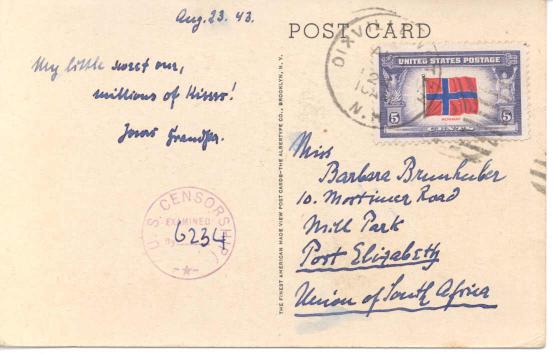 Aug. 23. 43.
My little sweet one,
millions of Kisses!
Your Grandpa.
U.S. CENSORSHIP
EXAMINED
By 6234
THE FINEST AMERICAN MADE VIEW POST CARDS—THE ALBERTYPE CO., BROOKLYN, N. Y.
POST CARD
DIXVILLE
N.H.
UNITED STATES POSTAGE
NORWAY
5 CENTS 5
Miss
Barbara Brumhuber
10. Mortimer Road
Mill Park
Port Elizabeth
Union of South Africa